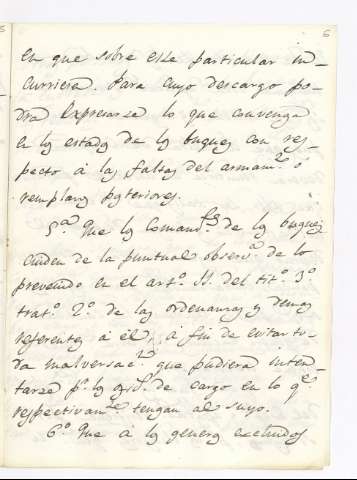 6
en que sobre este particular in-
curriera. Para cuyo descargo po-
dra Expresarse lo que convenga
en los estados de los buques con res-
pecto á las faltas del armam.to ó
remplazos posteriores.
5.a Que los Comand.tes de los buques
cuiden de la puntual observ.a de lo
prevenido en el art.o 11. del tit.o 3.o
trat.o 2.o de las ordenanzas y demas
referentes á él, á fin de evitar to-
da malversac.on que pudiera inten-
tarse p.r los de cargo en lo q.e
respectivam.te tengan al suyo.
6.o Que á los generos excluidos